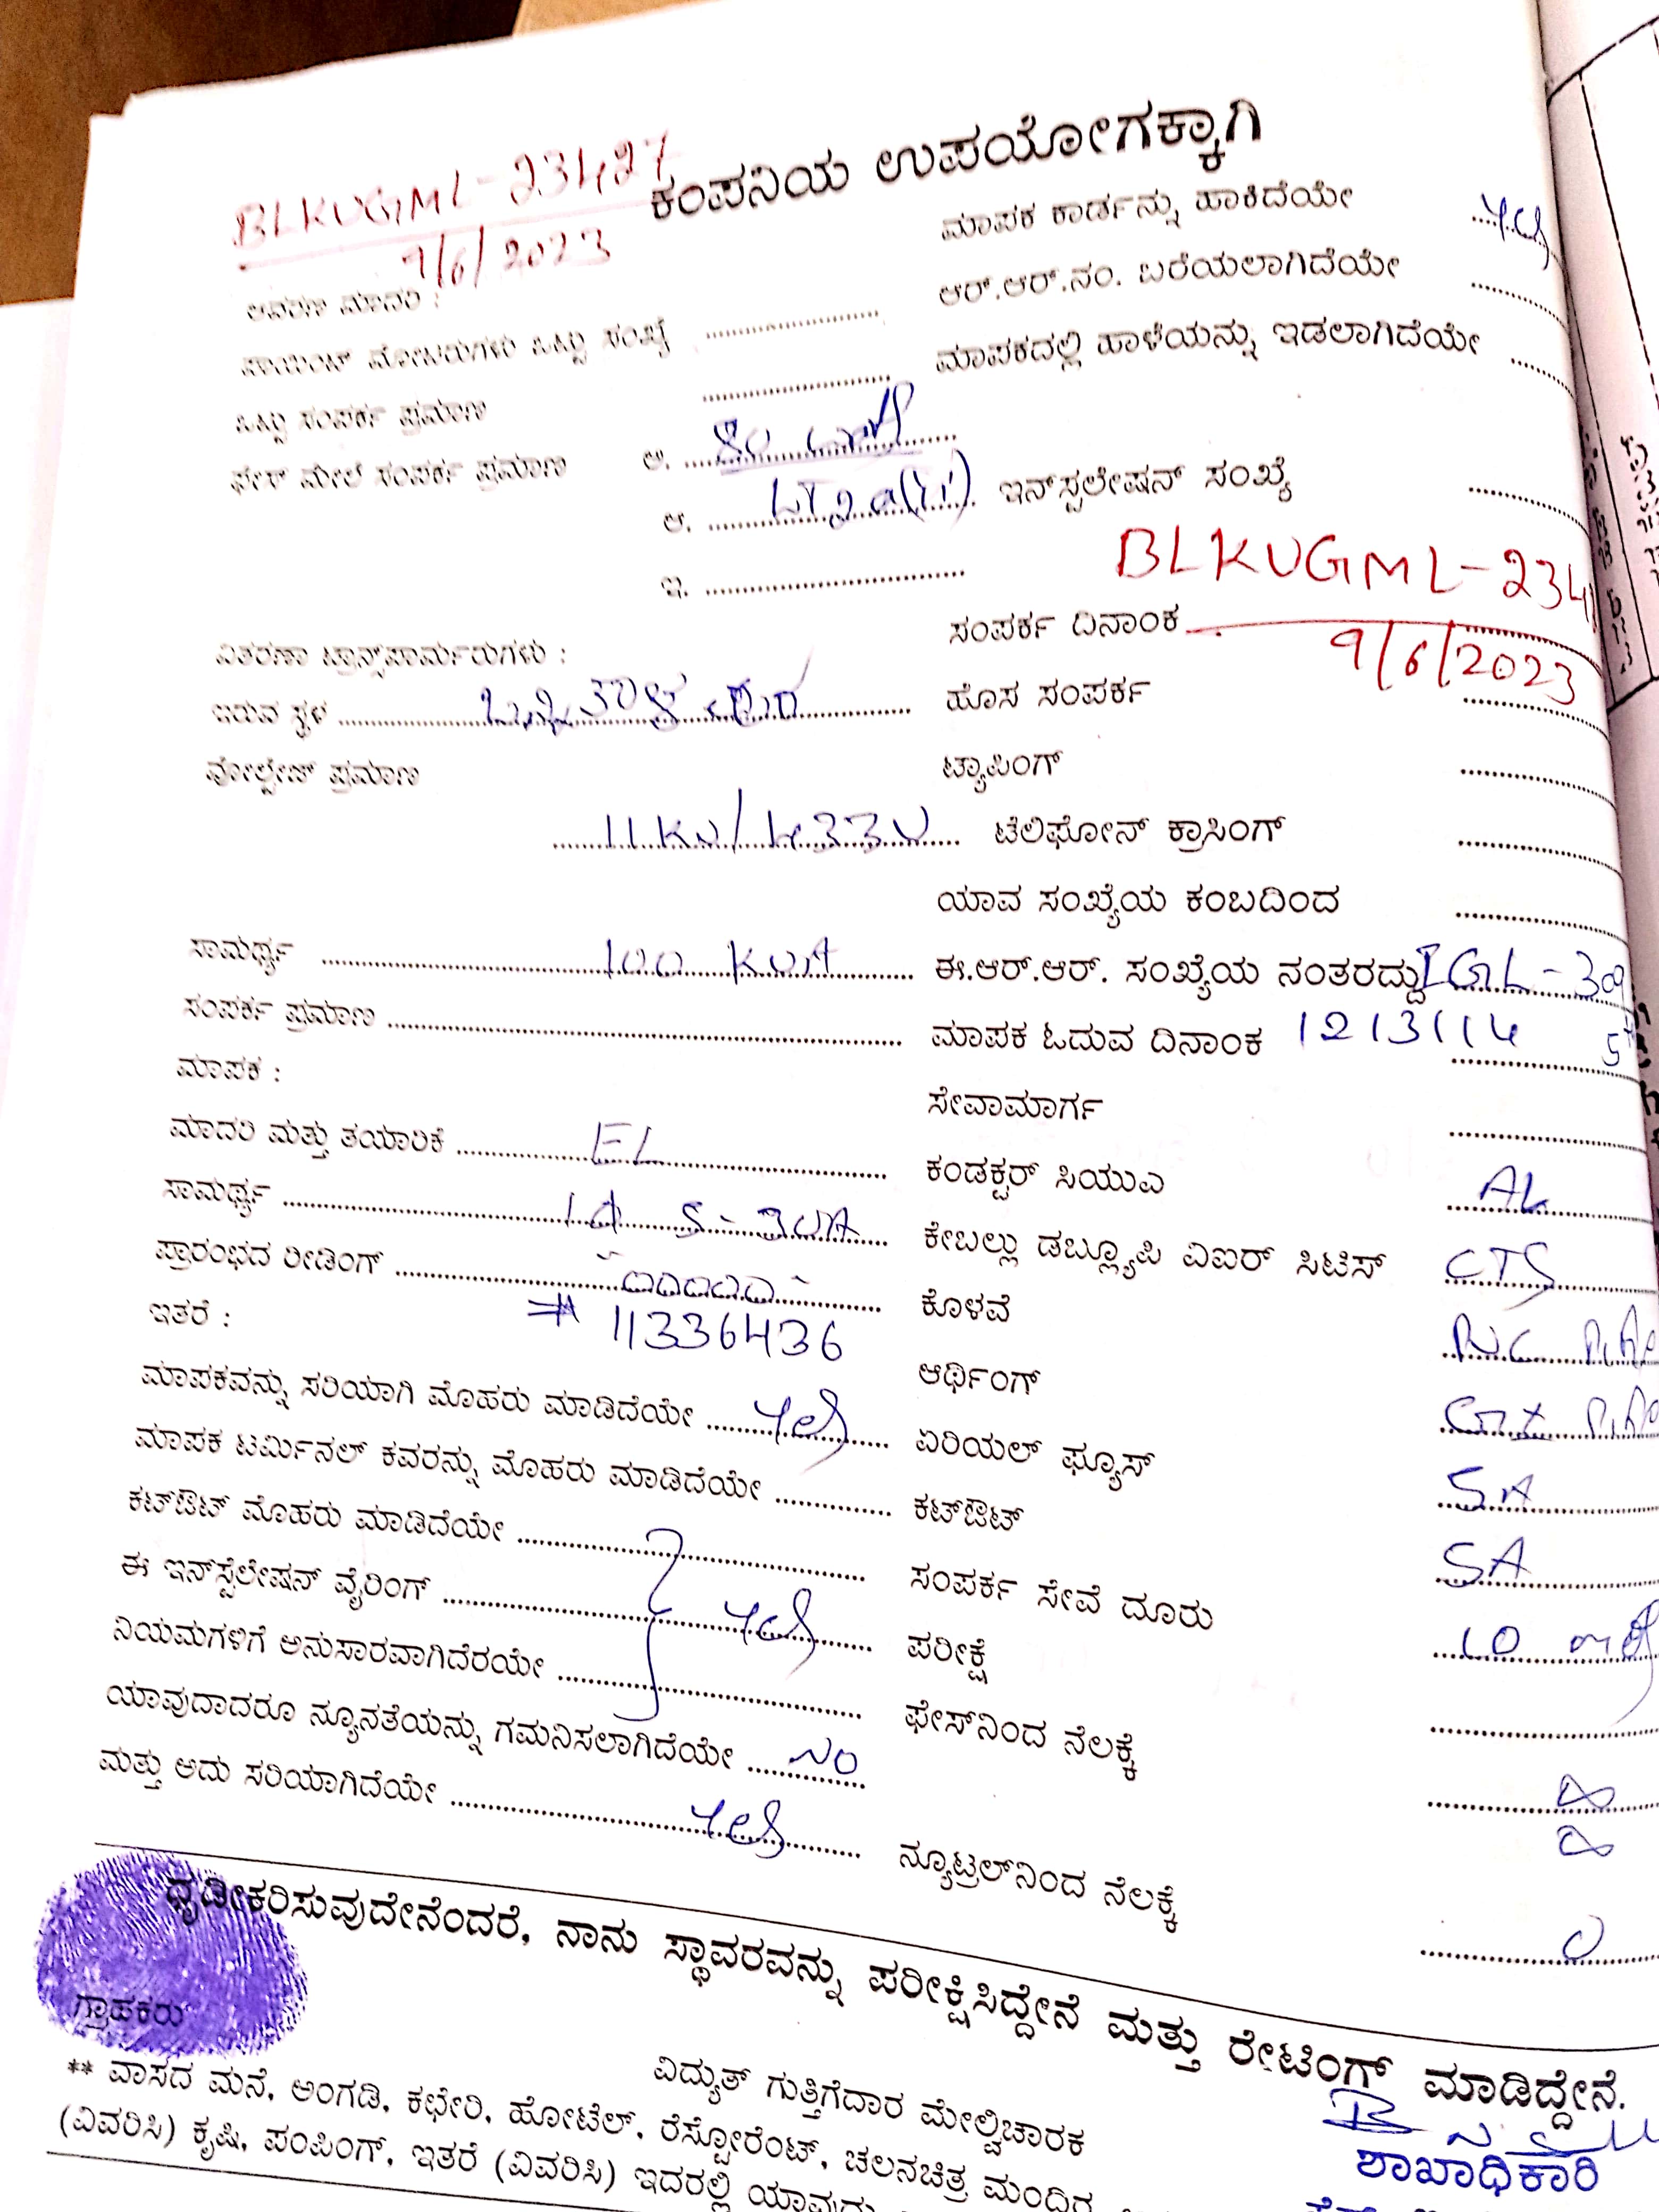 ಕಂಪನಿಯ ಉಪಯೋಗಕ್ಕಾಗಿ
BLKUGML-23427
9/6/2023
ಆವರಣ ಮಾದರಿ :
ಪಾಯಿಂಟ್ ಮೋಟಾರುಗಳು ಒಟ್ಟು ಸಂಖ್ಯೆ ....................
ಒಟ್ಟು ಸಂಪರ್ಕ ಪ್ರಮಾಣ ....................
ಫೇಸ್ ಮೇಲೆ ಸಂಪರ್ಕ ಪ್ರಮಾಣ ಅ. 80
ಆ. LT2a(ii)
ಇ. ....................
ವಿತರಣಾ ಟ್ರಾನ್ಸ್‌ಫಾರ್ಮರುಗಳು :
ಇರುವ ಸ್ಥಳ
ವೋಲ್ಟೇಜ್ ಪ್ರಮಾಣ
11KV/433V
ಸಾಮರ್ಥ್ಯ 100 KVA
ಸಂಪರ್ಕ ಪ್ರಮಾಣ ....................
ಮಾಪಕ :
ಮಾದರಿ ಮತ್ತು ತಯಾರಿಕೆ EL
ಸಾಮರ್ಥ್ಯ 1Φ 5-30A
ಪ್ರಾರಂಭದ ರೀಡಿಂಗ್ -00000-
ಇತರೆ : # 11336436
ಮಾಪಕವನ್ನು ಸರಿಯಾಗಿ ಮೊಹರು ಮಾಡಿದೆಯೇ Yes
ಮಾಪಕ ಟರ್ಮಿನಲ್ ಕವರನ್ನು ಮೊಹರು ಮಾಡಿದೆಯೇ ....................
ಕಟ್‌ಔಟ್ ಮೊಹರು ಮಾಡಿದೆಯೇ ....................
ಈ ಇನ್‌ಸ್ಟೆಲೇಷನ್ ವೈರಿಂಗ್ Yes
ನಿಯಮಗಳಿಗೆ ಅನುಸಾರವಾಗಿದೆರಯೇ ....................
ಯಾವುದಾದರೂ ನ್ಯೂನತೆಯನ್ನು ಗಮನಿಸಲಾಗಿದೆಯೇ NO
ಮತ್ತು ಅದು ಸರಿಯಾಗಿದೆಯೇ Yes
ಮಾಪಕ ಕಾರ್ಡನ್ನು ಹಾಕಿದೆಯೇ Yes
ಆರ್.ಆರ್.ನಂ. ಬರೆಯಲಾಗಿದೆಯೇ ....................
ಮಾಪಕದಲ್ಲಿ ಹಾಳೆಯನ್ನು ಇಡಲಾಗಿದೆಯೇ ....................
ಇನ್‌ಸ್ಟಲೇಷನ್ ಸಂಖ್ಯೆ ....................
BLKUGML-234
ಸಂಪರ್ಕ ದಿನಾಂಕ 9/6/2023
ಹೊಸ ಸಂಪರ್ಕ ....................
ಟ್ಯಾಪಿಂಗ್ ....................
ಟೆಲಿಫೋನ್ ಕ್ರಾಸಿಂಗ್ ....................
ಯಾವ ಸಂಖ್ಯೆಯ ಕಂಬದಿಂದ ....................
ಈ.ಆರ್.ಆರ್. ಸಂಖ್ಯೆಯ ನಂತರದ್ದು
ಮಾಪಕ ಓದುವ ದಿನಾಂಕ 1213114
ಸೇವಾಮಾರ್ಗ ....................
ಕಂಡಕ್ಟರ್ ಸಿಯುಎ AL
ಕೇಬಲ್ಲು ಡಬ್ಲ್ಯೂಪಿ ವಿಐರ್ ಸಿಟಿಸ್ CTS
ಕೊಳವೆ
ಆರ್ಥಿಂಗ್
ಏರಿಯಲ್ ಫ್ಯೂಸ್ 5A
ಕಟ್‌ಔಟ್ 5A
ಸಂಪರ್ಕ ಸೇವೆ ದೂರು 10
ಪರೀಕ್ಷೆ ....................
ಫೇಸ್‌ನಿಂದ ನೆಲಕ್ಕೆ
ನ್ಯೂಟ್ರಲ್‌ನಿಂದ ನೆಲಕ್ಕೆ 0
ಧೃಡೀಕರಿಸುವುದೇನೆಂದರೆ, ನಾನು ಸ್ಥಾವರವನ್ನು ಪರೀಕ್ಷಿಸಿದ್ದೇನೆ ಮತ್ತು ರೇಟಿಂಗ್ ಮಾಡಿದ್ದೇನೆ.
ಗ್ರಾಹಕರು
ವಿದ್ಯುತ್ ಗುತ್ತಿಗೆದಾರ ಮೇಲ್ವಿಚಾರಕ
ಶಾಖಾಧಿಕಾರಿ
** ವಾಸದ ಮನೆ, ಅಂಗಡಿ, ಕಛೇರಿ, ಹೋಟೆಲ್, ರೆಸ್ಟೋರೆಂಟ್, ಚಲನಚಿತ್ರ ಮಂದಿರ
(ವಿವರಿಸಿ) ಕೃಷಿ, ಪಂಪಿಂಗ್, ಇತರೆ (ವಿವರಿಸಿ) ಇದರಲ್ಲಿ